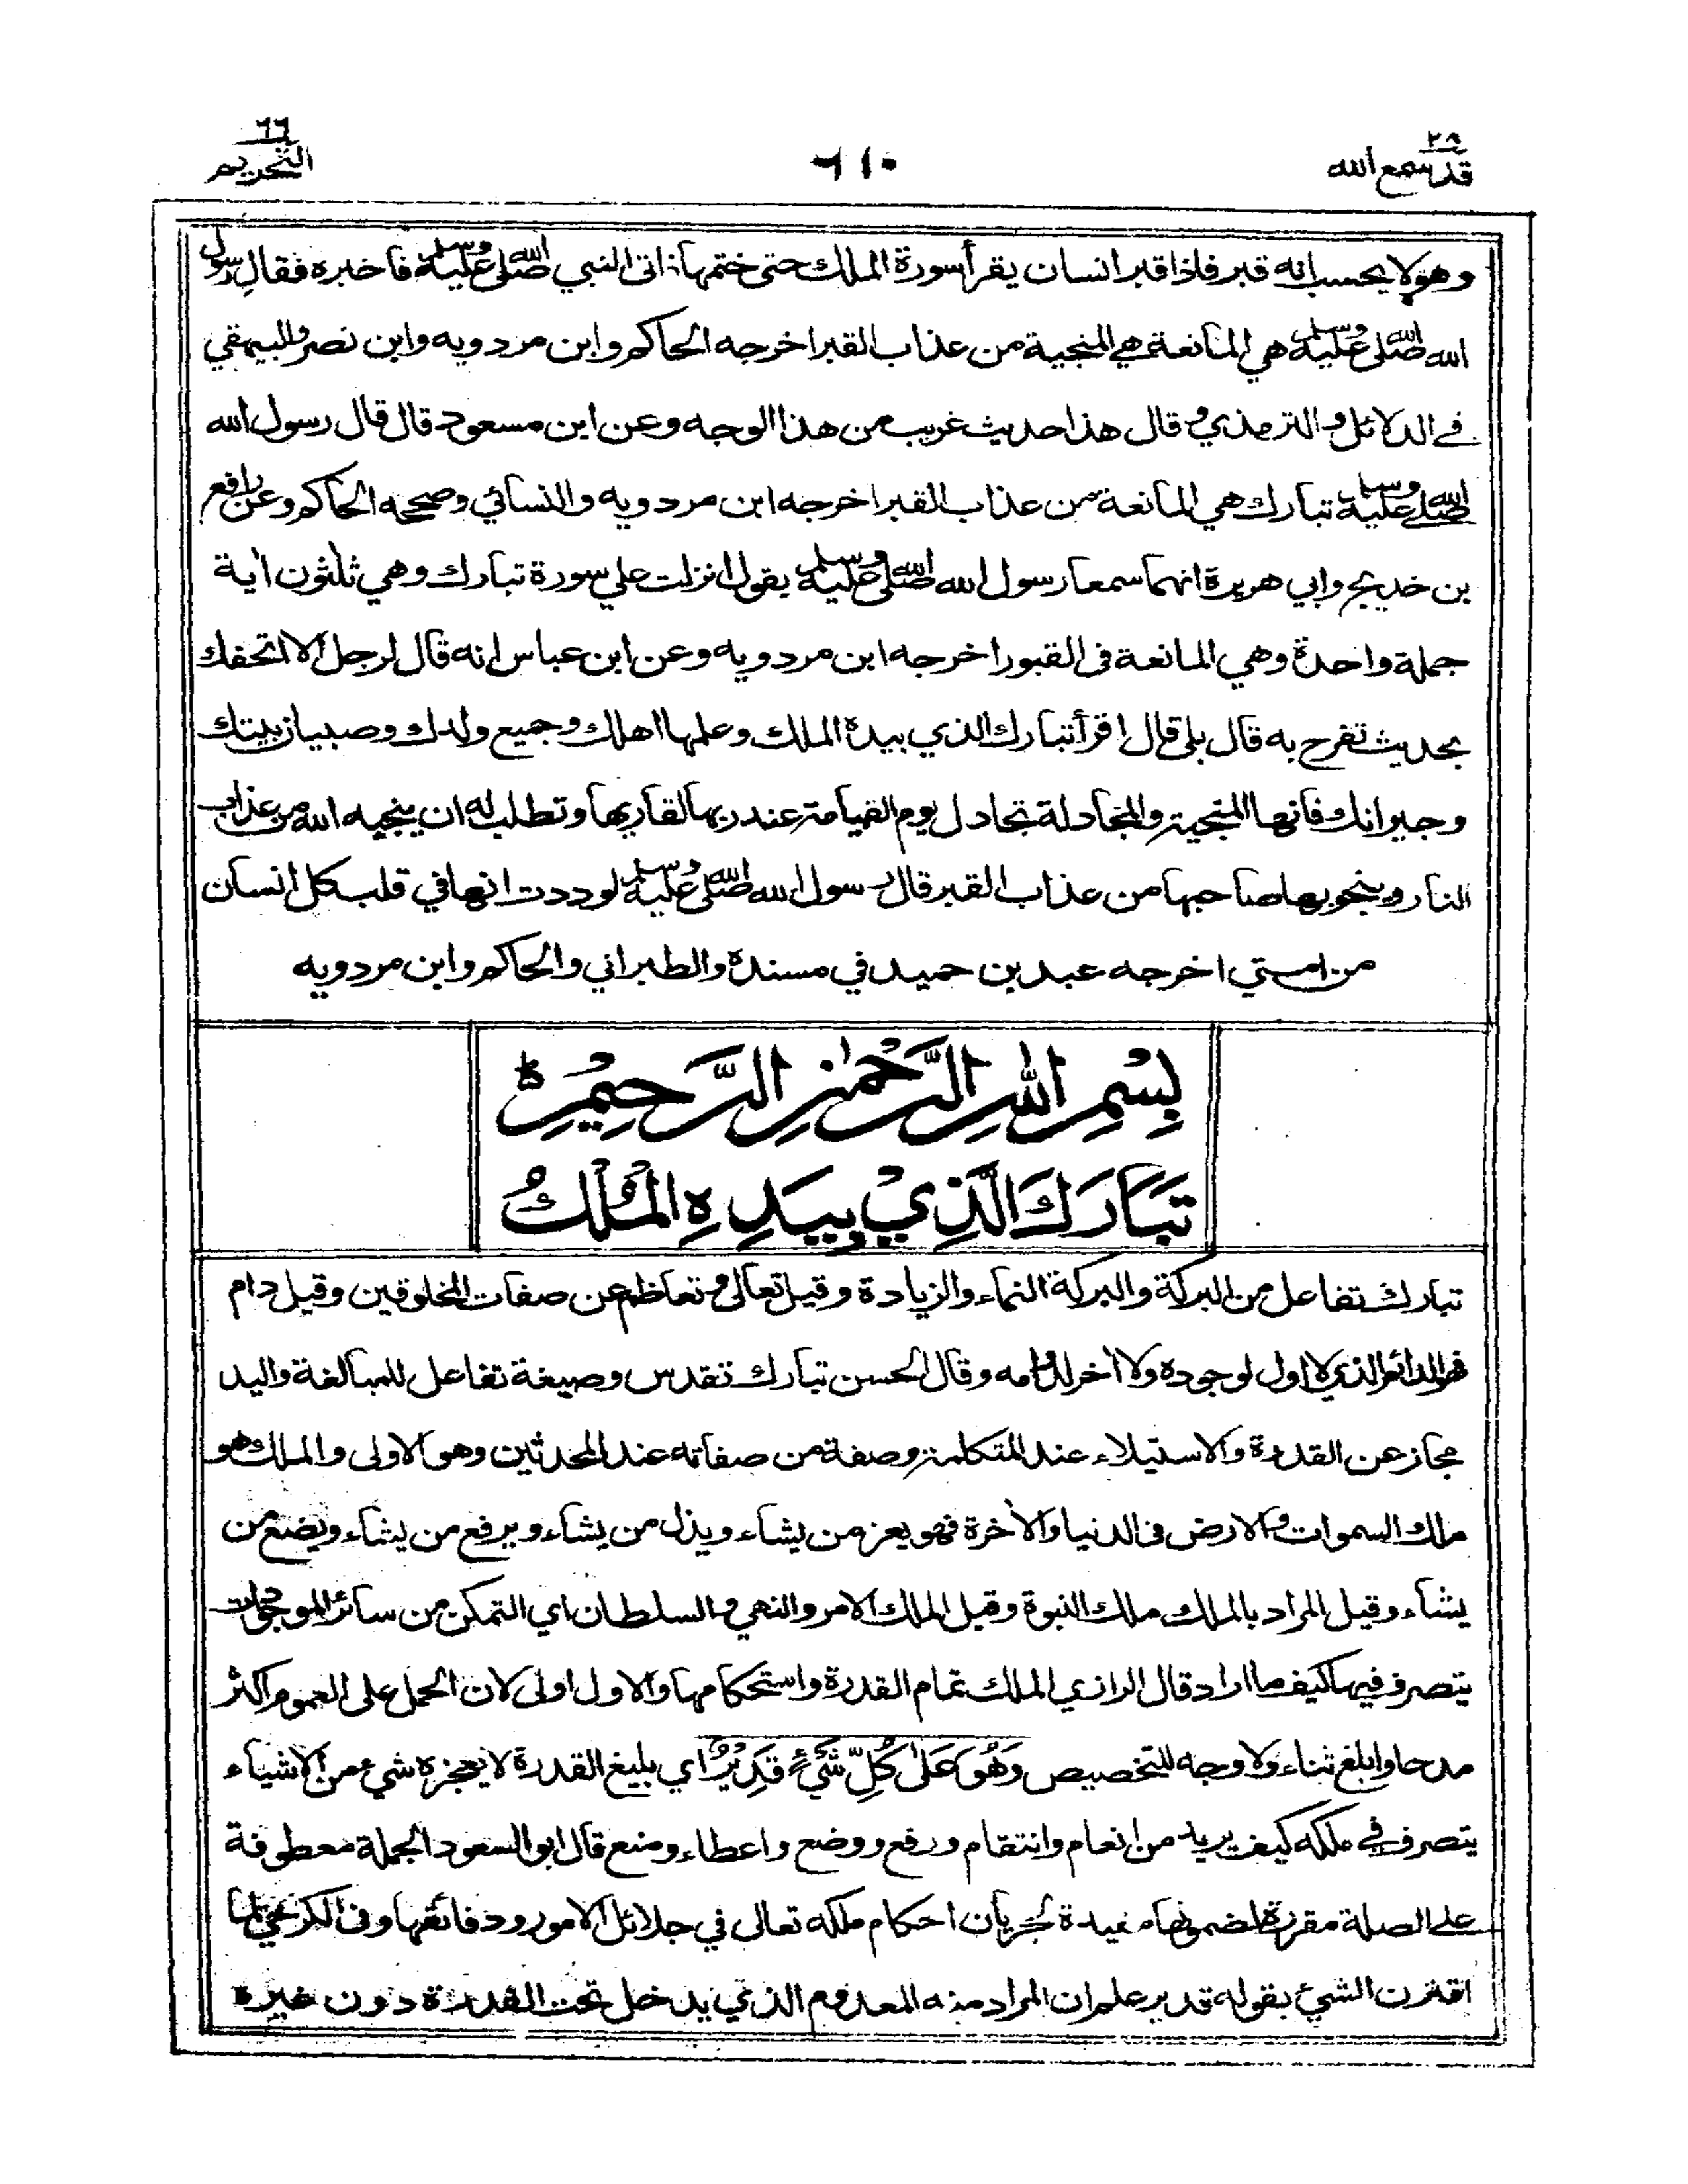 ٢٨
قد سمع الله
٦١٠
٦٦
التحريم
وهو لا يحسب انه قبر فاذا قبر انسان يقرأ سورة الملك حتى ختمها فاتى النبي صلى الله عليه وسلم فاخبره فقال رسول
الله صلى الله عليه وسلم هي المانعة هي المنجية من عذاب القبر اخرجه الحاكم وابن مردويه وابن نصر والبيهقي
في الدلائل والترمذي وقال هذا حديث غريب من هذا الوجه وعن ابن مسعود قال قال رسول الله
صلى الله عليه وسلم تبارك هي المانعة من عذاب القبر اخرجه ابن مردويه والنسائي وصححه الحاكم وعن رافع
بن خديج وابي هريرة انهما سمعا رسول الله صلى الله عليه وسلم يقول انزلت علي سورة تبارك وهي ثلثون أية
جملة واحدة وهي المانعة فى القبور اخرجه ابن مردويه وعن ابن عباس انه قال لرجل الا اتحفك
بحديث تفرح به قال بلى قال اقرأ تبارك الذي بيده الملك وعلمها اهلك وجميع ولدك وصبيان بيتك
وجيرانك فانها المنجية والمجادلة تجادل يوم القيامة عند ربها لقاريها وتطلب له ان ينجيه الله من عذاب
النار وينجو بها صاحبها من عذاب القبر قال رسول الله صلى الله عليه وسلم لوددت انها في قلب كل انسان
من امتي اخرجه عبد بن حميد في مسنده والطبراني والحاكم وابن مردويه
بِسْمِ اللهِ الرَّحْمٰنِ الرَّحِيْمِ ط
تَبَارَكَ الَّذِيْ بِيَدِهِ الْمُلْكُ
تبارك تفاعل من البركة والبركة النماء والزيادة وقيل تعالى وتعاظم عن صفات المخلوقين وقيل دام
فهو الدائم الذي لا اول لوجوده ولا أخر لدوامه وقال الحسن تبارك تقدس وصيغة تفاعل للمبالغة واليد
مجاز عن القدرة والاستيلاء عند المتكلمة وصفة من صفاته عند المحدثين وهو الاولى والملك هو
ملك السموات والارض فى الدنيا والأخرة فهو يعز من يشاء ويذل من يشاء ويرفع من يشاء ويضع من
يشاء وقيل المراد بالملك ملك النبوة وقيل الملك الامر والنهي والسلطان اي التمكن من سائر الموجودات
يتصرف فيها كيف ما اراد قال الرازي الملك تمام القدرة واستحكامها والاول اولى لان الحمل على العموم اكثر
مدحا وابلغ ثناء ولا وجه للتخصيص وَهُوَ عَلٰى كُلِّ شَيْءٍ قَدِيْرٌ اي بليغ القدرة لا يعجزه شيء من الاشياء
يتصرف في ملكه كيف يريد من انعام وانتقام ورفع ووضع واعطاء ومنع قال ابو السعود الجملة معطوفة
على الصلة مقررة لمضمونها مفيدة لجريان احكام ملكه تعالى في جلائل الامور ودقائقها وفى الكرخي لما
اقترن الشيء بقوله قدير علم ان المراد منه المعدوم الذي يدخل تحت القدرة دون غيره